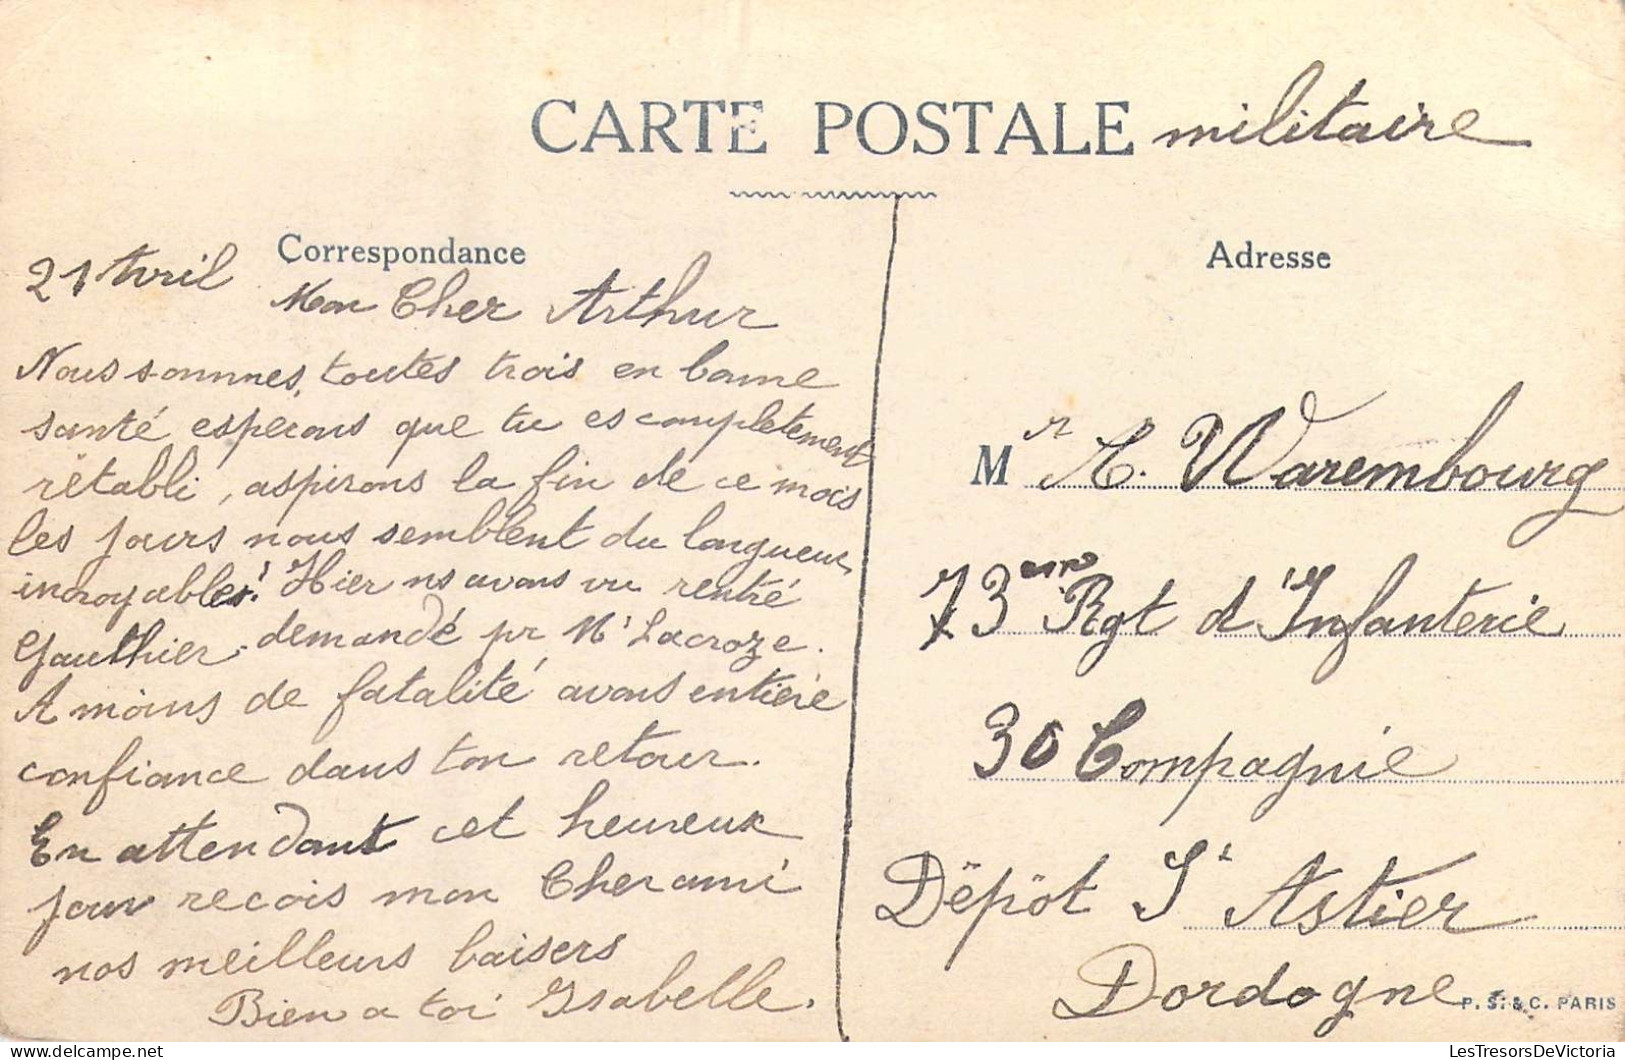 CARTE POSTALE militaire
Correspondance
21 Avril
Mon Cher Arthur
Nous sommes, toutes trois en bonne
santé esperons que tu es completement
rétabli, aspirons la fin de ce mois
les jours nous semblent du longueur
incroyables! Hier ns avons vu rentré
Gauthier. demandé pr Mr Lacroze.
A moins de fatalité avons entière
confiance dans ton retour.
En attendant cet heureux
jour recois mon Cher ami
nos meilleurs baisers
Bien a toi Isabelle.
Adresse
Mr A. Warembourg
73eme Rgt d'Infanterie
30 Compagnie
Dépôt St Astier
Dordogne
P. S. & C. PARIS
LesTresorsDeVictoria